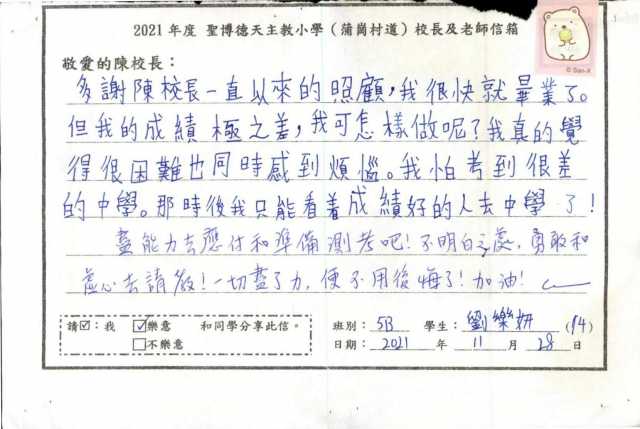 2021 年度 聖博德天主教小學（蒲崗村道）校長及老師信箱
© San-X
敬愛的陳校長：
多謝陳校長一直以來的照顧，我很快就畢業了。
但我的成績極之差，我可怎樣做呢？我真的覺
得很困難也同時感到煩惱。我怕考到很差
的中學。那時後我只能看着成績好的人去中學了！
盡能力去應付和準備測考吧！不明白之處，勇敢和
虛心去請教！一切盡了力，便不用後悔了！加油！
請☑：我 ☑樂意 和同學分享此信。 班別：5B 學生：劉樂妍 (14)
☐不樂意 日期：2021 年 11 月 28 日